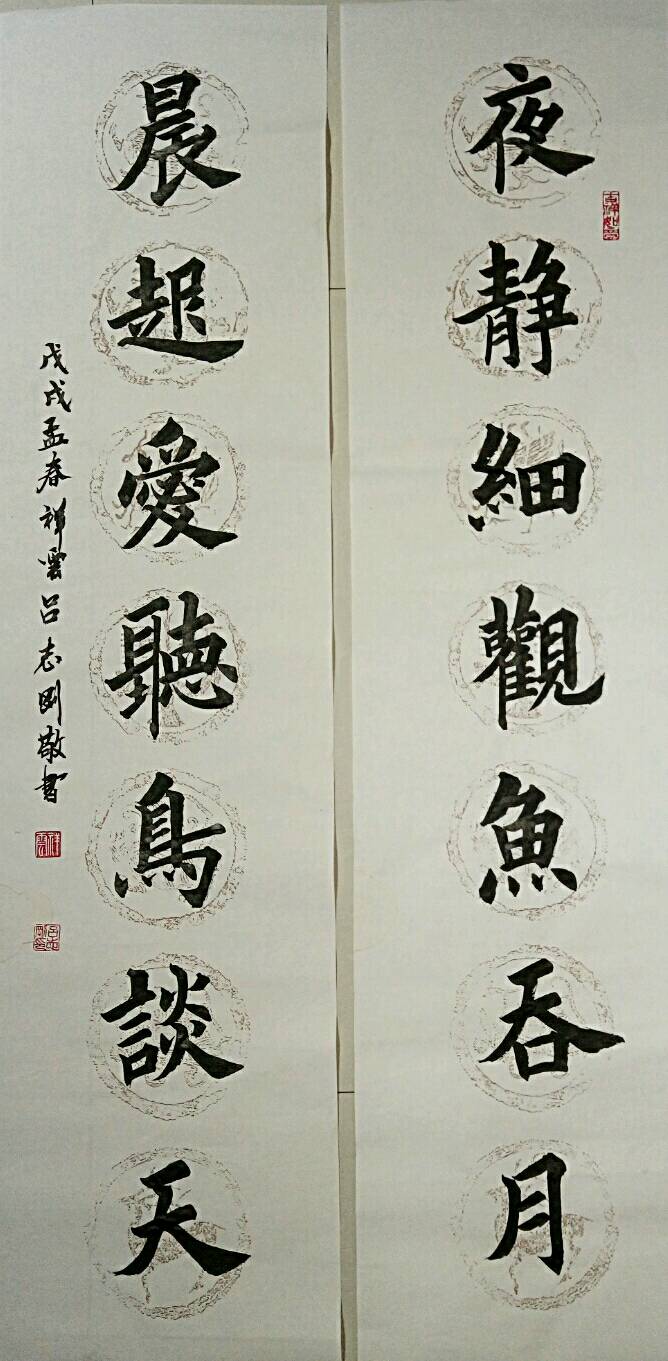 夜靜細觀魚吞月
晨起愛聽鳥談天
戊戌孟春祥雲呂志剛敬書